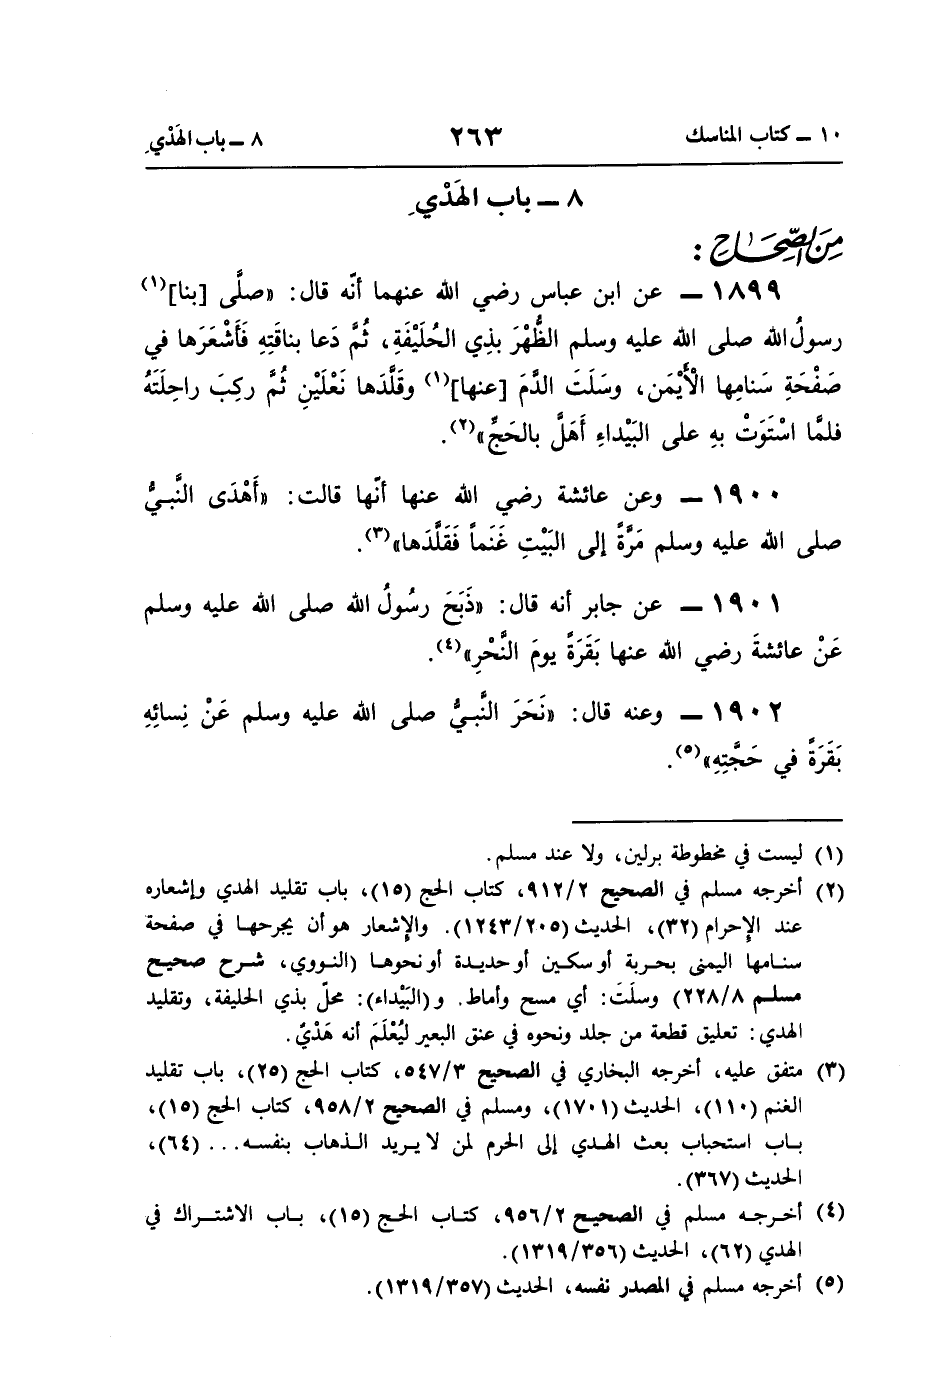 ١٠ ــ كتاب المناسك ٢٦٣ ٨ ــ باب الهَدْيِ
٨ ــ باب الهَدْيِ
مِنَ الصِّحَاحِ :
١٨٩٩ ــ عن ابن عباس رضي الله عنهما أنّه قال: «صلَّى [بنا](١)
رسولُ الله صلى الله عليه وسلم الظُّهْرَ بذِي الحُلَيْفَةِ، ثُمَّ دَعا بناقَتِهِ فَأَشْعَرَها في
صَفْحَةِ سَنامِها الْأَيْمَن، وسَلَتَ الدَّمَ [عنها](١) وقَلَّدَها نَعْلَيْنِ ثُمَّ ركِبَ راحِلتَهُ
فلمَّا اسْتَوَتْ بهِ على البَيْداءِ أَهَلَّ بالحَجِّ»(٢).
١٩٠٠ ــ وعن عائشة رضي الله عنها أنّها قالت: «أَهْدَى النَّبيُّ
صلى الله عليه وسلم مَرَّةً إلى البَيْتِ غَنَماً فَقَلَّدَها»(٣).
١٩٠١ ــ عن جابر أنه قال: «ذَبَحَ رسُولُ الله صلى الله عليه وسلم
عَنْ عائشةَ رضي الله عنها بَقَرَةً يومَ النَّحْرِ»(٤).
١٩٠٢ ــ وعنه قال: «نَحَرَ النَّبيُّ صلى الله عليه وسلم عَنْ نِسائِهِ
بَقَرَةً في حَجَّتِهِ»(٥).
(١) ليست في مخطوطة برلين، ولا عند مسلم.
(٢) أخرجه مسلم في الصحيح ٩١٢/٢، كتاب الحج (١٥)، باب تقليد الهدي وإشعاره
عند الإحرام (٣٢)، الحديث (١٢٤٣/٢٠٥). والإشعار هو أن يجرحها في صفحة
سنامها اليمنى بحربة أو سكين أو حديدة أو نحوها (النووي، شرح صحيح
مسلم ٢٢٨/٨) وسلَتَ: أي مسح وأماط. و (البَيْداء): محلّ بذي الحليفة، وتقليد
الهدي: تعليق قطعة من جلد ونحوه في عنق البعير ليُعْلَمَ أنه هَدْيٌ.
(٣) متفق عليه، أخرجه البخاري في الصحيح ٥٤٧/٣، كتاب الحج (٢٥)، باب تقليد
الغنم (١١٠)، الحديث (١٧٠١)، ومسلم في الصحيح ٩٥٨/٢، كتاب الحج (١٥)،
باب استحباب بعث الهدي إلى الحرم لمن لا يريد الذهاب بنفسه... (٦٤)،
الحديث (٣٦٧).
(٤) أخرجه مسلم في الصحيح ٩٥٦/٢، كتاب الحج (١٥)، باب الاشتراك في
الهدي (٦٢)، الحديث (١٣١٩/٣٥٦).
(٥) أخرجه مسلم في المصدر نفسه، الحديث (١٣١٩/٣٥٧).